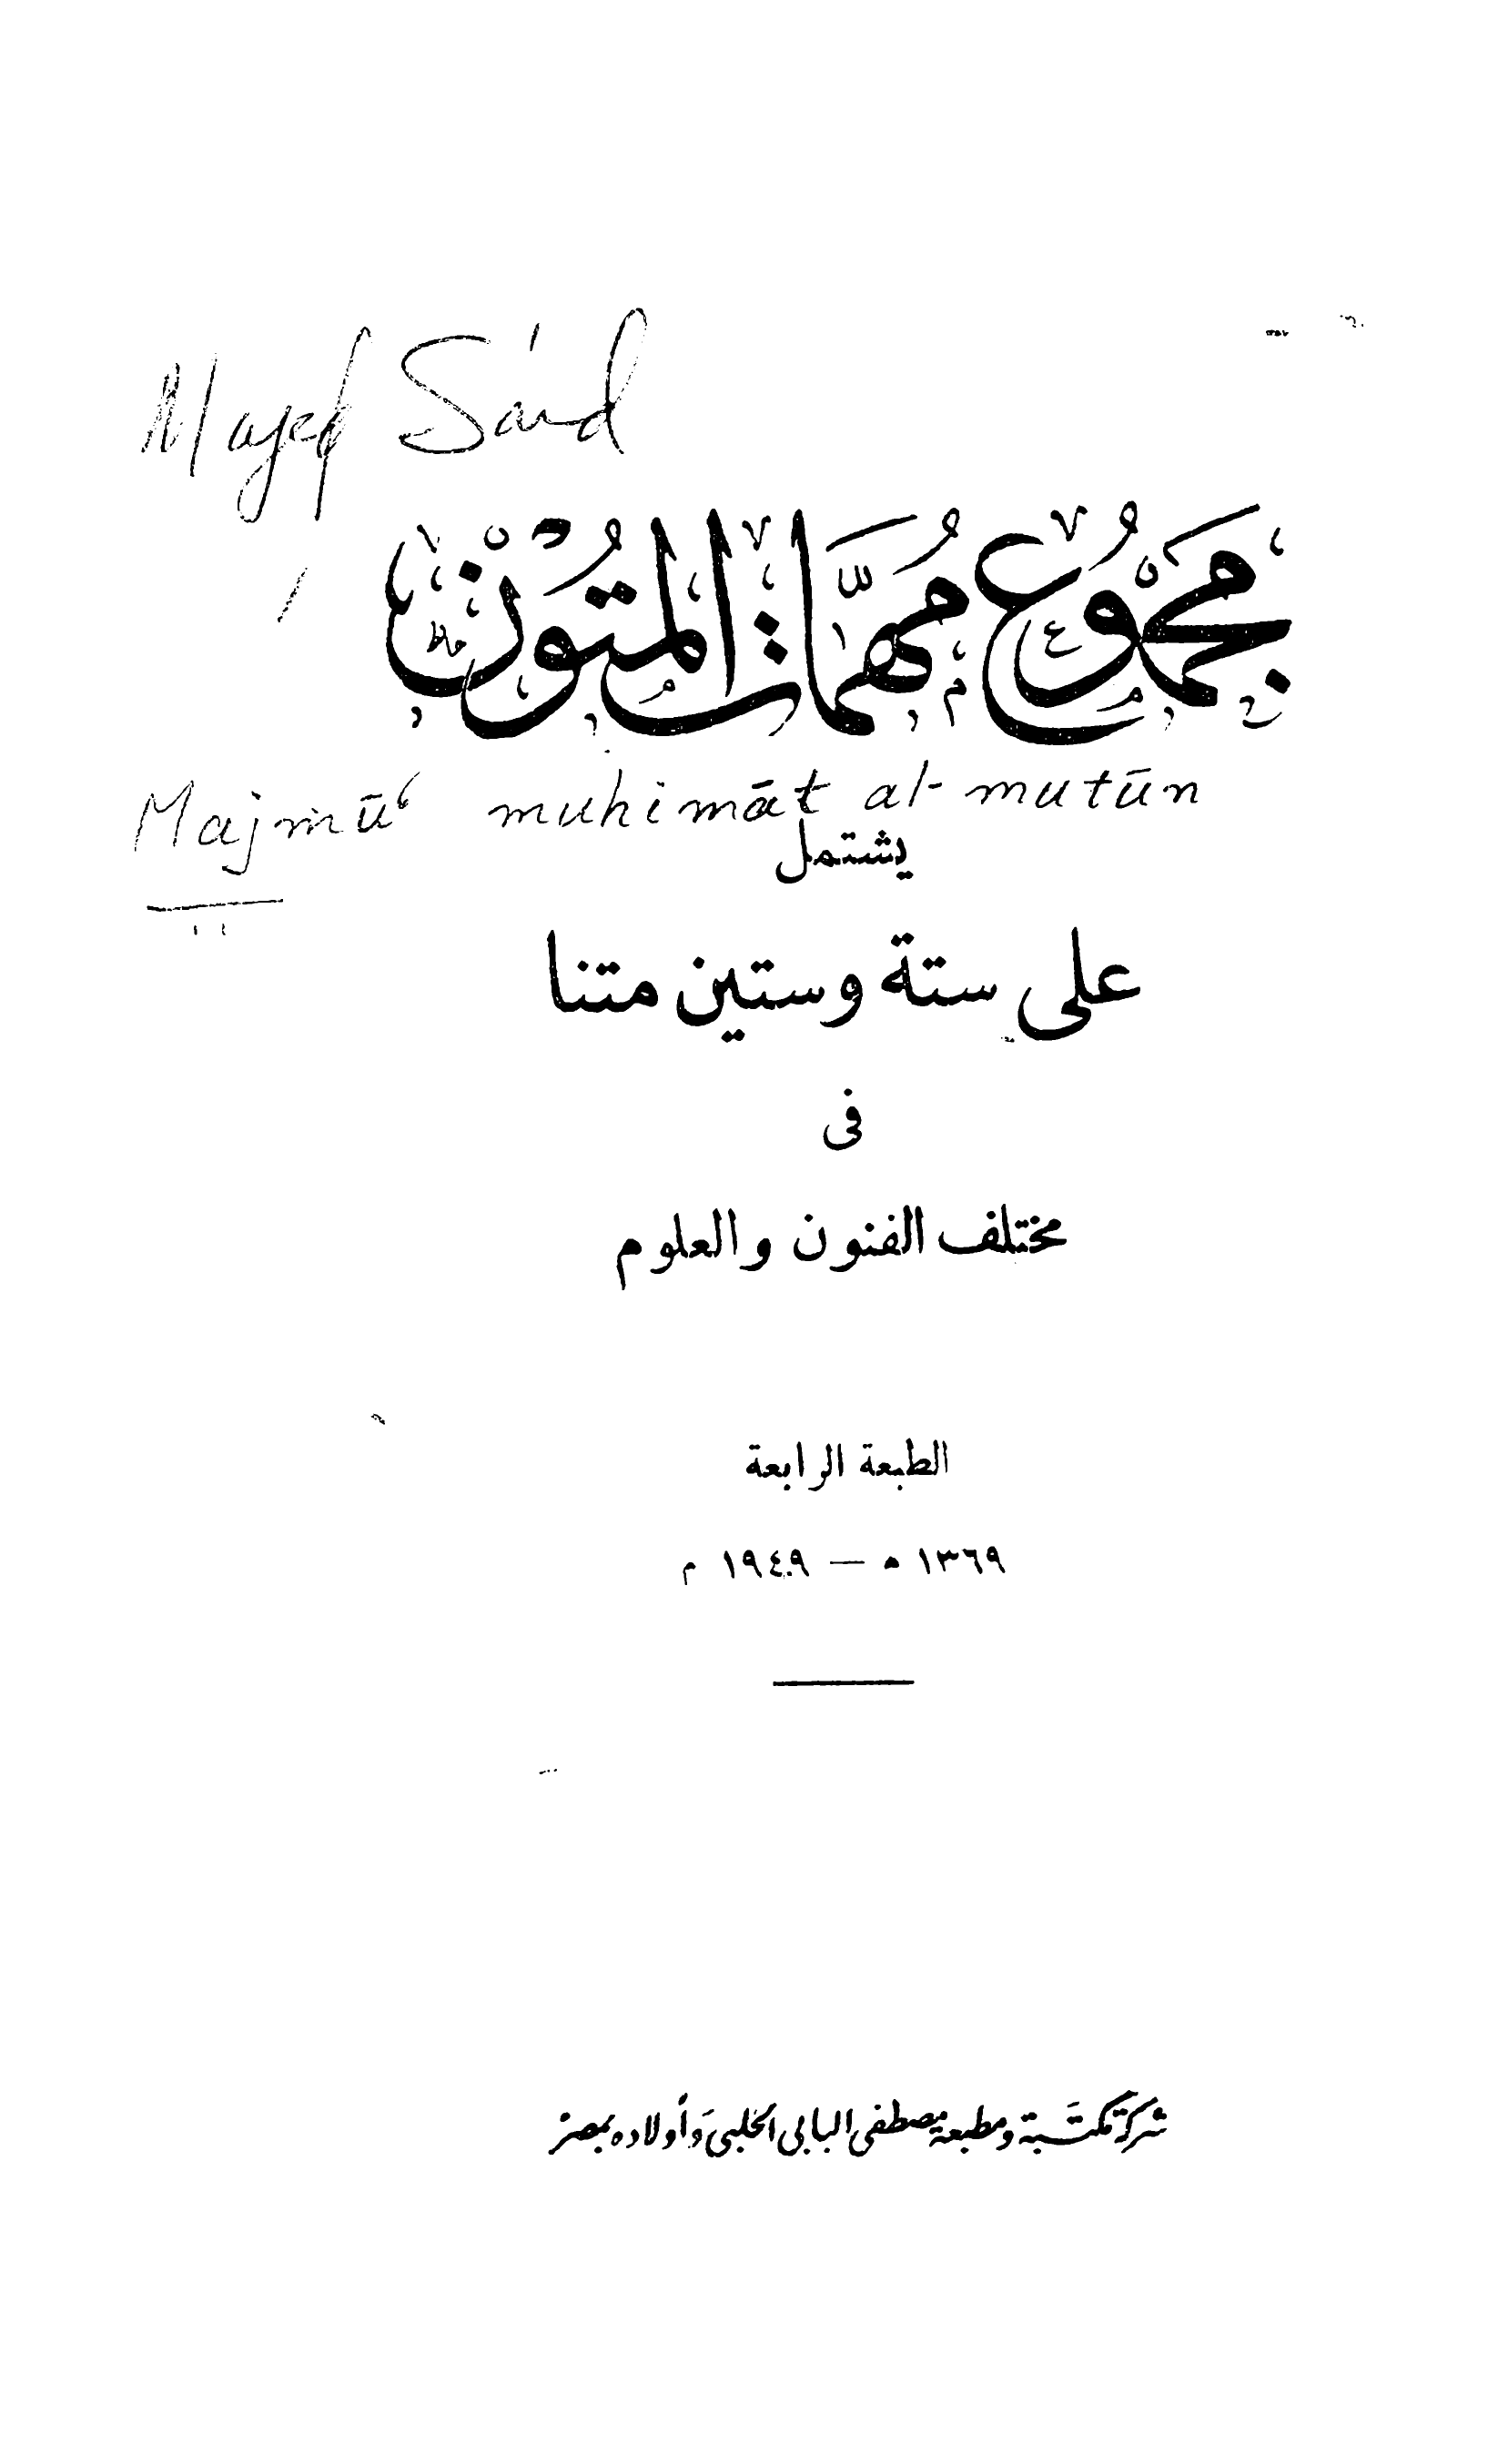 Majed Sa'id
مجموع مهمات المتون
Majmū' muhimāt al-mutūn
يشتمل
على ستة وستين متنا
فى
مختلف الفنون والعلوم
الطبعة الرابعة
١٣٦٩ ه — ١٩٤٩ م
شركة مكتبة ومطبعة مصطفى البابى الحلبى وأولاده بمصر